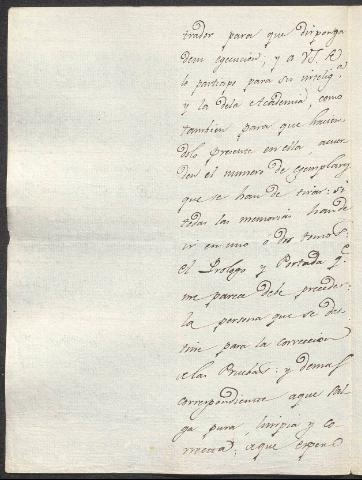 trador para que disponga
de su egecucion; y a VS. 
lo participo para su intelig.ª
y la dela Academia, como
tambien para que hacien
dolo presente en ella acuer
den el numero de exemplares
que se han de tirar: si
todas las memorias han de
ir en uno o dos tomos:
el Prologo y Portada q.e
me parece debe preceder:
la persona que se des
tine para la correccion
de las Pruebas: y demas
correspondiente aque sal
ga pura, limpia y co
rrecta: aque expen